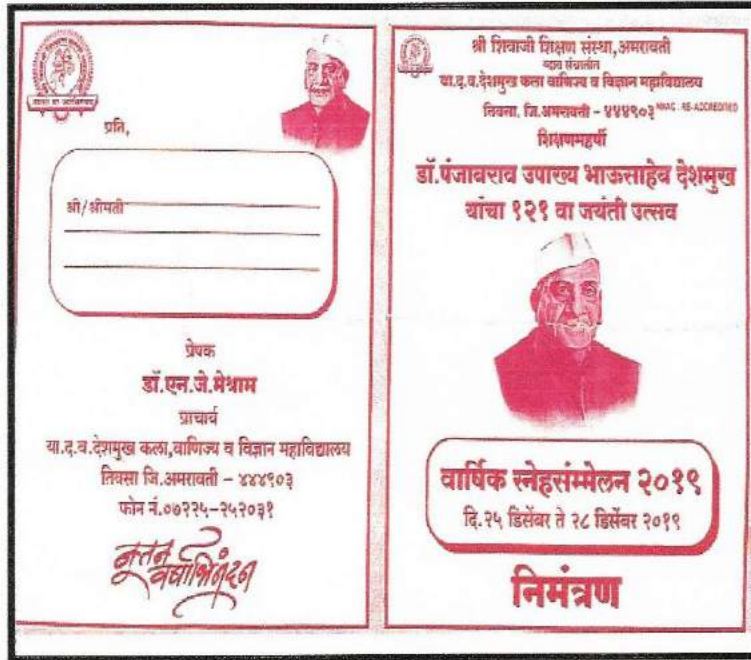 प्रति,
श्री/श्रीमती
प्रेषक
डॉ.एन.जे.मेश्राम
प्राचार्य
या.द.व.देशमुख कला,वाणिज्य व विज्ञान महाविद्यालय
तिवसा जि.अमरावती - ४४४९०३
फोन नं.०७२२५-२५२०३१
नूतन
वर्षाभिनंदन
श्री शिवाजी शिक्षण संस्था,अमरावती
द्वारा संचालीत
या.द.व.देशमुख कला वाणिज्य व विज्ञान महाविद्यालय
तिवसा, जि.अमरावती - ४४४९०३ NAAC : RE-ACCREDITED
शिक्षणमहर्षी
डॉ.पंजाबराव उपाख्य भाऊसाहेब देशमुख
यांचा १२१ वा जयंती उत्सव
वार्षिक स्नेहसंम्मेलन २०१९
दि.२५ डिसेंबर ते २८ डिसेंबर २०१९
निमंत्रण